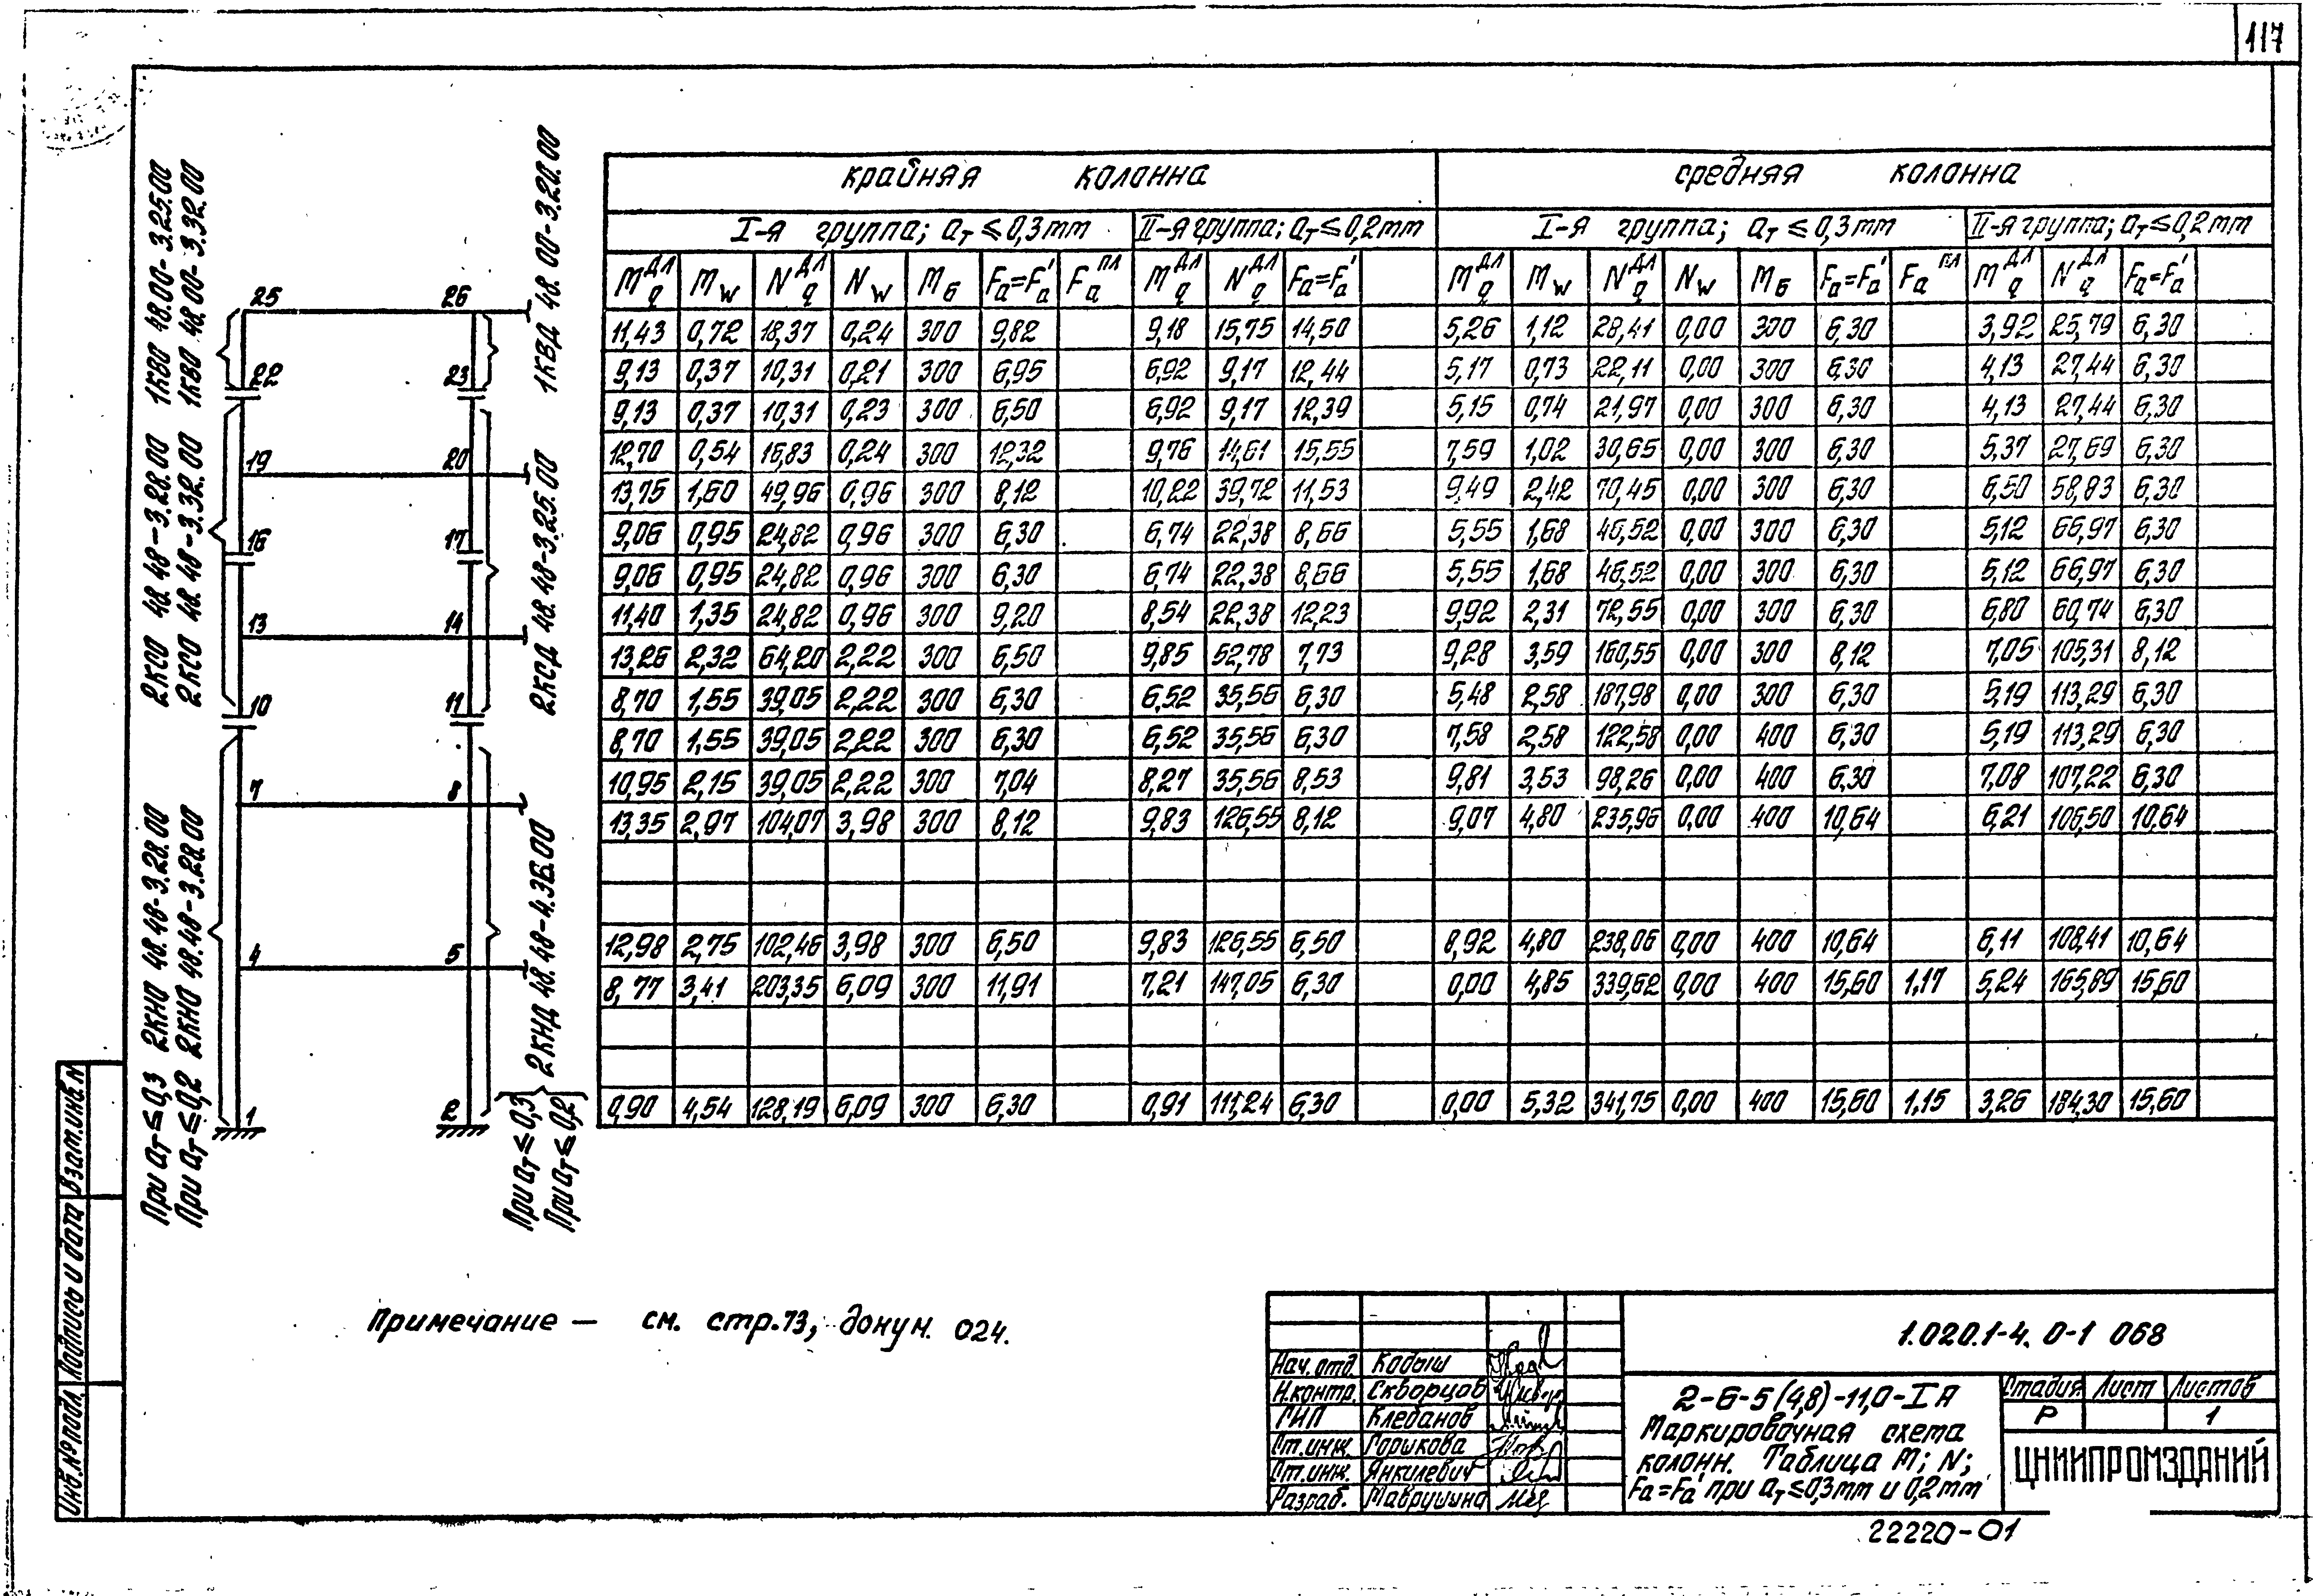 117
1КВО 48.00-3.25.00
1КВО 48.00-3.32.00
2КСО 48.48-3.28.00
2КСО 48.48-3.32.00
При aт≤0,3 2КНО 48.48-3.28.00
При aт≤0,2 2КНО 48.48-3.28.00
1КВД 48.00-3.20.00
2КСД 48.48-3.25.00
2КНД 48.48-4.36.00
При aт≤0,3
При aт≤0,2
25 26
22 23
19 20
16 17
13 14
10 11
7 8
4 5
1 2
крайняя колонна средняя колонна
I-я группа; aт≤0,3mm II-я группа; aт≤0,2mm I-я группа; aт≤0,3mm II-я группа; aт≤0,2mm
Mqдл Mw Nqдл Nw Mб Fa=Fa' Faпл Mqдл Nqдл Fa=Fa' Mqдл Mw Nqдл Nw Mб Fa=Fa' Faпл Mqдл Nqдл Fa=Fa'
11,43 0,72 18,37 0,24 300 9,82 9,18 15,75 14,50 5,26 1,12 28,41 0,00 300 6,30 3,92 25,79 6,30
9,13 0,37 10,31 0,21 300 6,95 6,92 9,17 12,44 5,17 0,73 22,11 0,00 300 6,30 4,13 27,44 6,30
9,13 0,37 10,31 0,23 300 6,50 6,92 9,17 12,39 5,15 0,74 21,97 0,00 300 6,30 4,13 27,44 6,30
12,70 0,54 16,83 0,24 300 12,32 9,76 14,61 15,55 7,59 1,02 30,65 0,00 300 6,30 5,37 27,69 6,30
13,75 1,60 49,96 0,96 300 8,12 10,22 39,72 11,53 9,49 2,42 70,45 0,00 300 6,30 6,50 58,83 6,30
9,06 0,95 24,82 0,96 300 6,30 6,74 22,38 8,66 5,55 1,68 46,52 0,00 300 6,30 5,12 66,97 6,30
9,06 0,95 24,82 0,96 300 6,30 6,74 22,38 8,66 5,55 1,68 46,52 0,00 300 6,30 5,12 66,97 6,30
11,40 1,35 24,82 0,96 300 9,20 8,54 22,38 12,23 9,92 2,31 72,55 0,00 300 6,30 6,80 60,74 6,30
13,26 2,32 64,20 2,22 300 6,50 9,85 52,78 7,73 9,28 3,59 160,55 0,00 300 8,12 7,05 105,31 8,12
8,70 1,55 39,05 2,22 300 6,30 6,52 35,56 6,30 5,48 2,58 187,98 0,00 300 6,30 5,19 113,29 6,30
8,70 1,55 39,05 2,22 300 6,30 6,52 35,56 6,30 7,58 2,58 122,58 0,00 400 6,30 5,19 113,29 6,30
10,95 2,15 39,05 2,22 300 7,04 8,27 35,56 8,53 9,81 3,53 98,26 0,00 400 6,30 7,08 107,22 6,30
13,35 2,97 104,07 3,98 300 8,12 9,83 126,55 8,12 9,07 4,80 235,96 0,00 400 10,64 6,21 106,50 10,64
12,98 2,75 102,46 3,98 300 6,50 9,83 126,55 6,50 8,92 4,80 238,06 0,00 400 10,64 6,11 108,41 10,64
8,77 3,41 203,35 6,09 300 11,91 7,21 147,05 6,30 0,00 4,85 339,62 0,00 400 15,60 1,17 5,24 165,89 15,60
0,90 4,54 128,19 6,09 300 6,30 0,91 111,24 6,30 0,00 5,32 341,75 0,00 400 15,60 1,15 3,26 184,30 15,60
Примечание — см. стр.73, докум. 024.
Инв.№ подл. Подпись и дата Взам.инв.N
Нач.отд. Кодыш
Н.контр. Скворцов
ГИП Клебанов
Ст.инж. Горшкова
Ст.инж. Янкилевич
Разраб. Маврушина
1.020.1-4. 0-1 068
2-6-5(4,8)-11,0-IА
Маркировочная схема
колонн. Таблица M; N;
Fa=Fa' при aт≤0,3mm и 0,2mm
Стадия Лист Листов
Р 1
ЦНИИПРОМЗДАНИЙ
22220-01